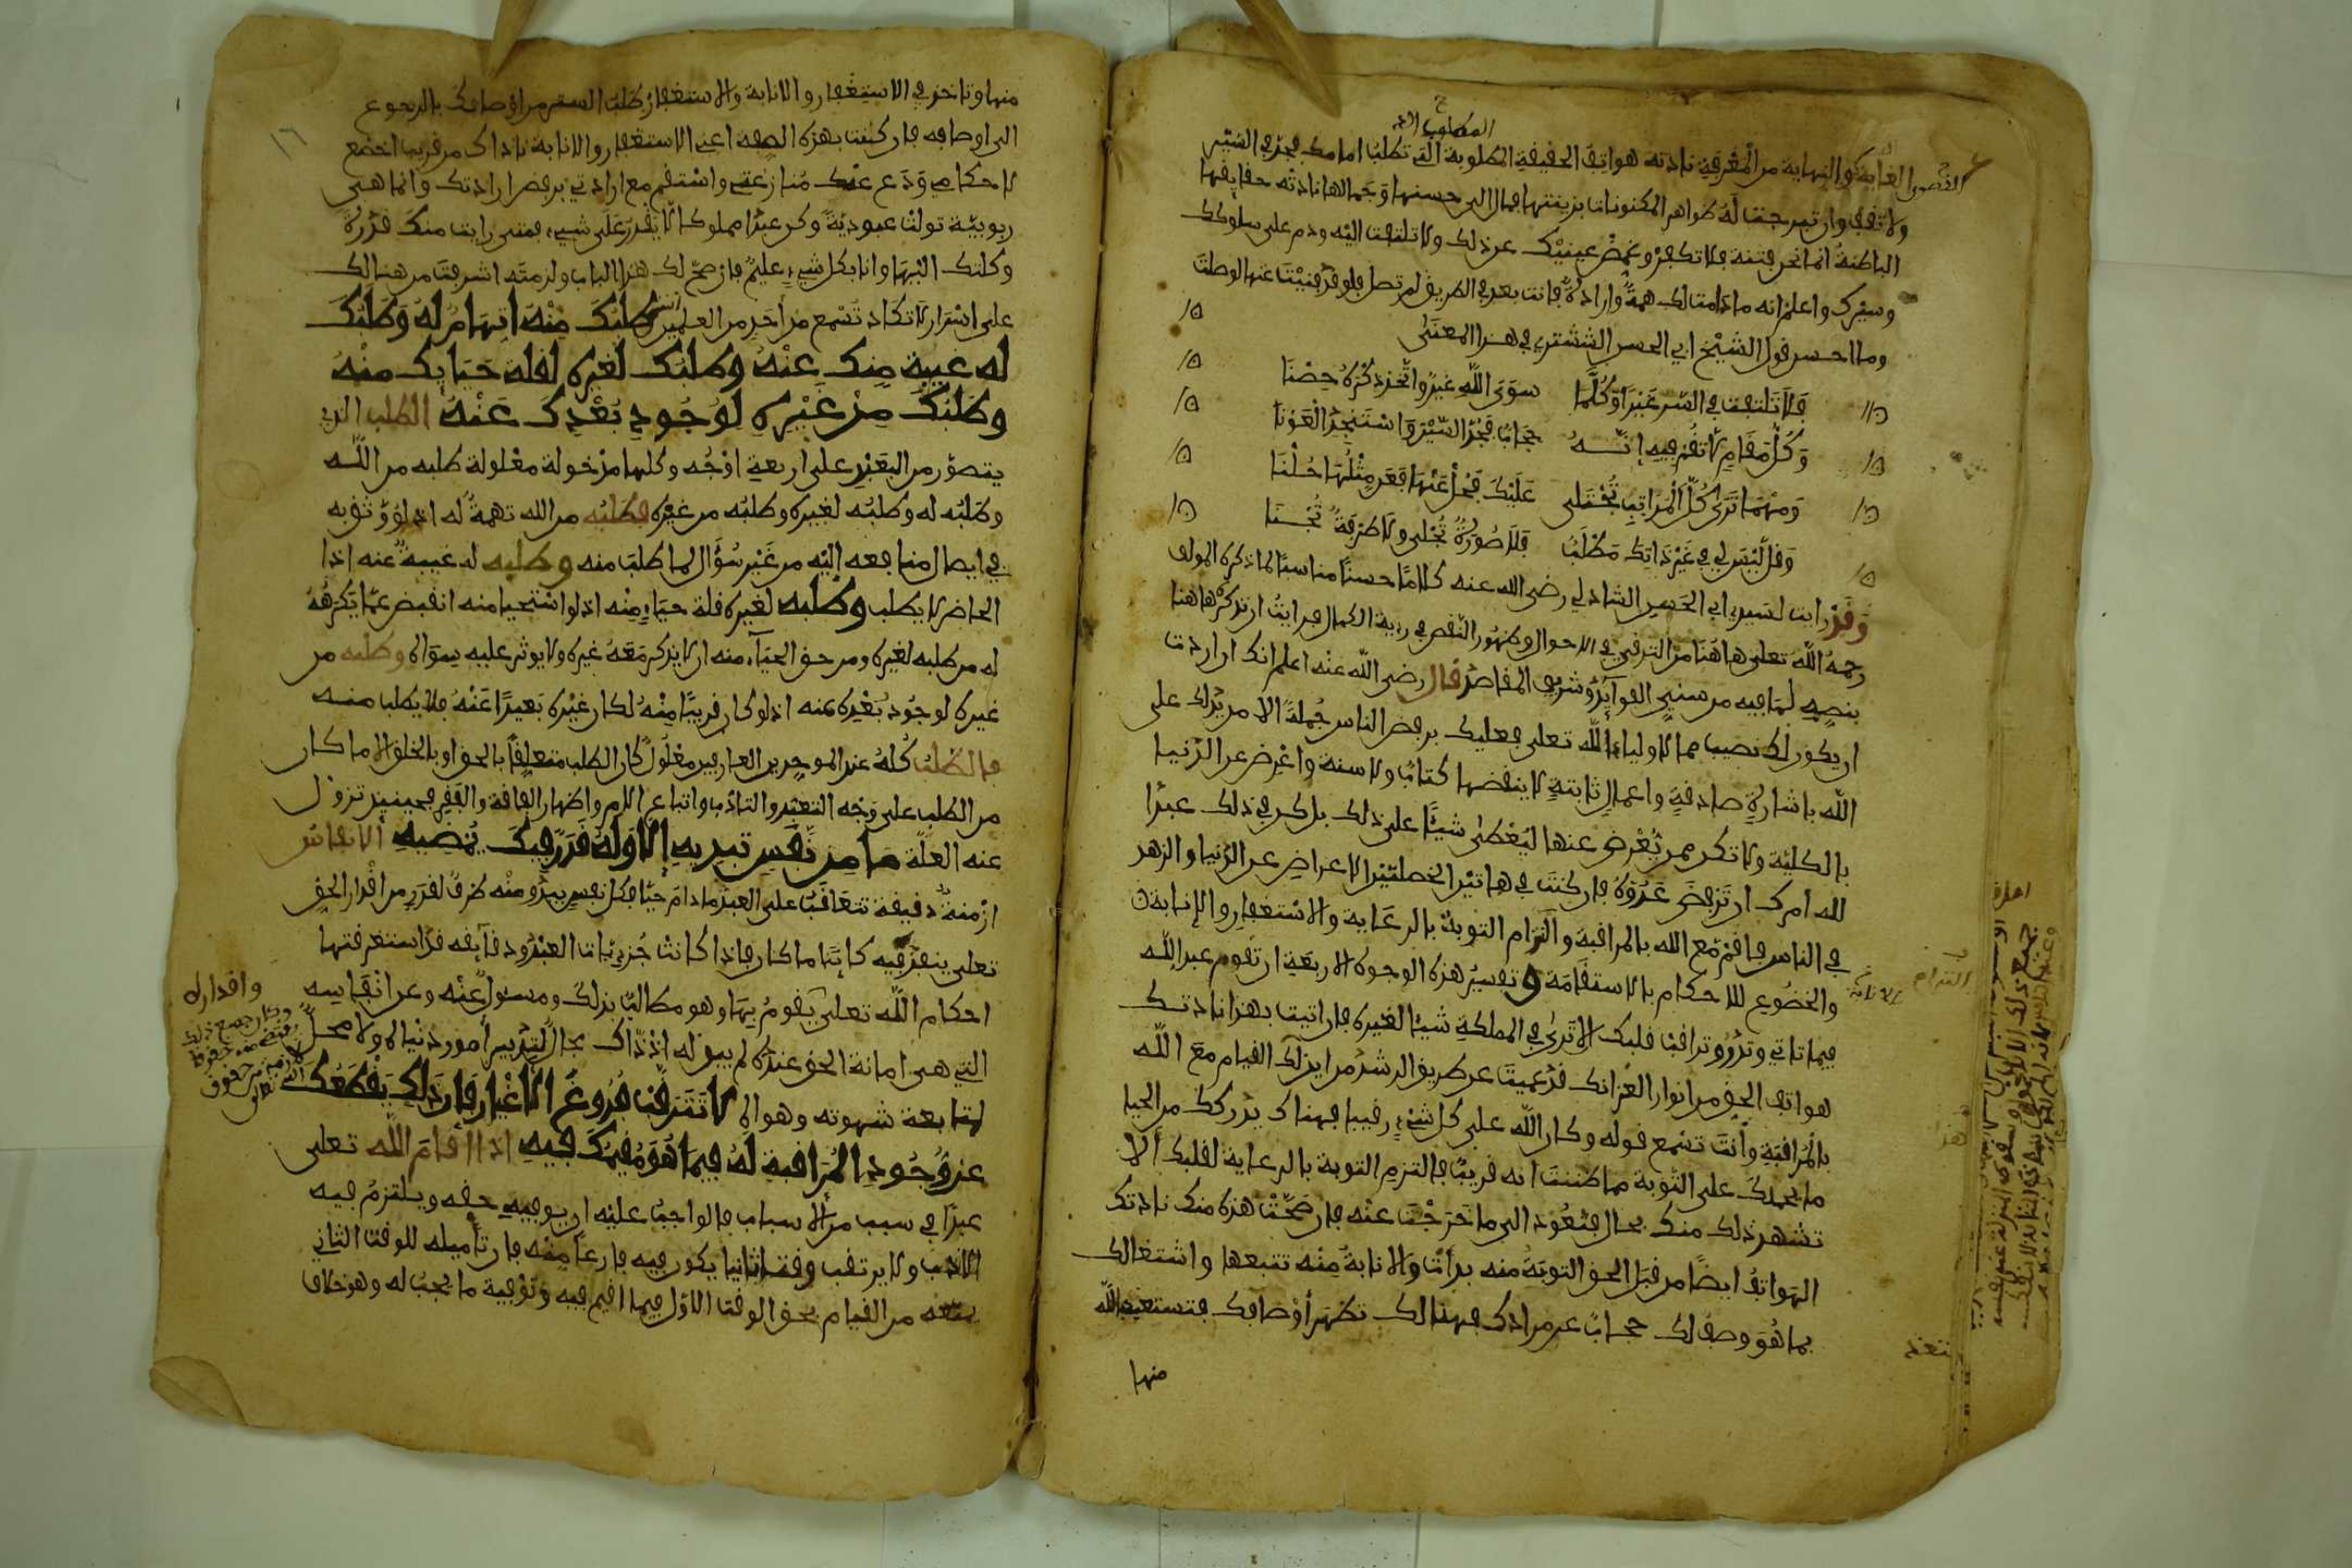 المطلوب الا
القصوى الغاية والنهاية من المعرفة نادته هواتف الحقيقة المطلوبة التي تطلب امامك فجد في السير
ولا تقف وان تبرجت له ظواهر المكنونات بزينتها فمال الى حسنها وجمالها نادته حقايقها
الباطنة انما نحن فتنة فلا تكفر وغمض عينيك عن ذلك ولا تلتفت اليه ودم على سلوكك
وسيرك واعلم انه ما دامت لك همة وارادة فانت بعد في الطريق لم تصل فلو قد فنيت عنها لوصلت
وما احسن قول الشيخ ابي الحسن الششتري في هذا المعنى
فلا تلتفت في السير غيرا وكلما سوى الله غير واتخذ ذكره حصنا
وكل مقام لا تقم فيه انه حجاب فجد السير واستنجد العونا
ومهما ترى كل المراتب تجتلى عليك فحل عنها فعن مثلها حلنا
وقل ليس لي في غير ذاتك مطلب فلا صورة تجلى ولا طرفة تجنا
وقد رايت لسيدي ابي الحسن الشاذلي رضي الله عنه كلاما حسنا مناسبا لما ذكره المولف
رحمه الله تعلى هاهنا من الترقي في الاحوال وظهور النقص في رءية الكمال فرايت ان نذكره هاهنا
بنصه لما فيه من سني الفوآيد وشريف المقاصد قال رضي الله عنه اعلم انك ان اردت
ان يكون لك نصيب مما لاولياء الله تعلى فعليك برفض الناس جملة الا من يدلك على
الله باشارة صادقة واعمال ثابتة لا ينقضها كتاب ولا سنة واعرض عن الدنيا
بالكلية ولا تكن ممن يعرض عنها ليعطى شيئا على ذلك بل كن في ذلك عبدا
لله امرك ان ترفض عدوه فان كنت في هاتين الخصلتين الاعراض عن الدنيا والزهد
في الناس فاقم مع الله بالمراقبة والتزام التوبة بالرعاية والاستغفار والانابة
والخضوع للاحكام بالاستقامة وتفسير هذه الوجوه الاربعة ان تقوم عبد الله
فيما تاتي وتذر وتراقب قلبك الا ترى في المملكة شيئا لغيره فان اتيت بهذا نادتك
هواتف الحق من انوار العز انك قد عميت عن طريق الرشد من اين لك القيام مع الله
بالمراقبة وانت تسمع قوله وكان الله على كل شيء رقيبا فهناك يدركك من الحيا
ما يحملك على التوبة مما ظننت انه قربة فالتزم التوبة بالرعاية لقلبك الا
تشهد ذلك منك بحال فتعود الى ما خرجت عنه فان صحت هذه منك نادتك
الهواتف ايضا من قبل الحق التوبة منه بدات والانابة منه تتبعها واشتغالك
بما هو وصف لك حجاب عن مرادك فهنالك تظهر اوصافك فتستعيذ بالله
منها
منها وتاخذ في الاستغفار والانابة والاستغفار طلب الستر من اوصافك بالرجوع
الى اوصافه فان كنت بهذه الصفة اعني الاستغفار والانابة ناداك من قريب اخضع
لاحكامي ودع عنك منازعتي واستقم مع ارادتي برفض ارادتك وانما هي
ربوبية تولت عبودية وكن عبدا مملوكا لا يقدر على شيء فمتى رايت منك قدرة
وكلتك اليها وانا بكل شيء عليم فان صح لك هذا الباب ولزمته اشرفت من هنالك
على اسرار لا تكاد تسمع من احد من العلمين طلبك منه اتهام له وطلبك
له غيبة منك عنه وطلبك لغيره لقلة حيايك منه
وطلبك من غيره لوجود بعدك عنه الطلب الذي
يتصور من العبد على اربعة اوجه وكلها مدخولة معلولة طلبه من الله
وطلبه له وطلبه لغيره وطلبه من غيره فطلبه من الله تهمة له اذ لو وثق به
في ايصال منافعه اليه من غير سؤال لما طلب منه وطلبه له غيبة عنه اذا
الحاضر لا يطلب وطلبه لغيره قلة حياء منه اذ لو استحيا منه انقبض عما يكرهه
له من طلبه لغيره ومن حق الحيآء منه ان لا يذكر معه غيره ولا يوثر عليه سواه وطلبه من
غيره لوجود بعده عنه اذ لو كان قريبا منه لكان غيره بعيدا عنه فلا يطلب منه
فالطلب كله عند الموحدين العارفين معلول كان الطلب متعلقا بالحق او بالخلق الا ما كان
من الطلب على وجه التعبد والتادب واتباع الامر واظهار الفاقة والفقر فحينيذ تزول
عنه العلة ما من نفس تبديه الا وله قدر فيك يمضيه الانفاس
ازمنة دقيقة تتعاقب على العبد ما دام حيا فكل نفس يبدو منه ظرف لقدر من اقدار الحق
تعلى ينفذ فيه كاينا ما كان فاذا كانت جزيات العبد ودقآيقه قد استغرقتها
احكام الله تعلى يقوم بها وهو مطالب بذلك ومسئول عنه وعن انفاسه واقداره
التي هي امانة الحق عنده لم يبق له اذ ذاك مجال لتدبير امور دنياه ولا محل
لمتابعة شهوته وهواه لا تترقب فروغ الاغيار فان ذلك يقطعك
عن وجود المراقبة له فيما هو مقيمك فيه اذا اقام الله تعلى
عبدا في سبب من الاسباب فالواجب عليه ان يوفيه حقه ويلتزم فيه
الادب ولا يرتقب وقتا ثانيا يكون فيه فارغا منه فان تاميله للوقت الثاني
يمنعه من القيام بحق الوقت الاول فيما اقيم فيه وتوفية ما يجب له وهو خلاف